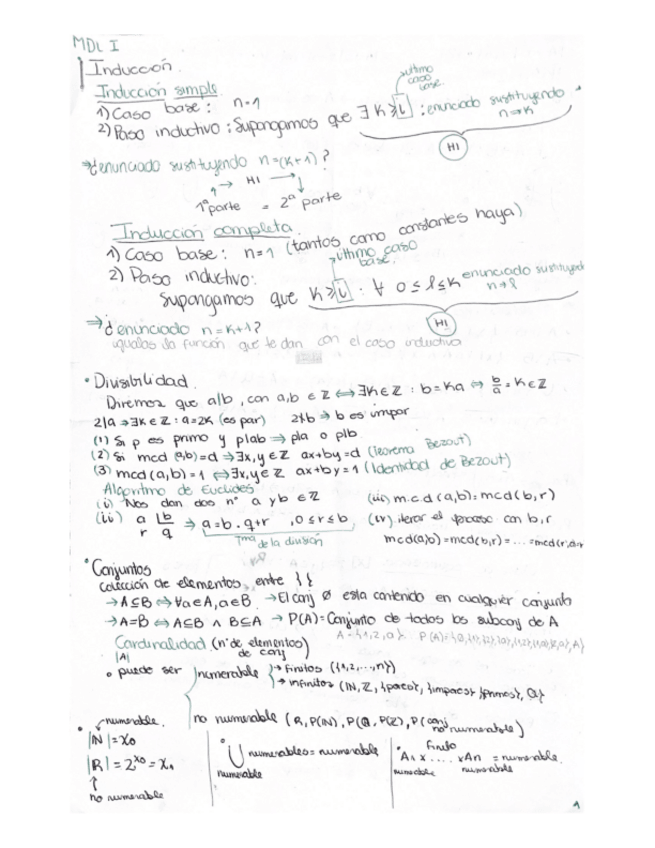 MDL I
Inducción.
Inducción simple
último caso base.
1) Caso base: n=1
2) Paso inductivo: Supongamos que ∃ K≥i : enunciado sustituyendo n=>K
HI
⇒ ¿enunciado sustituyendo n=(K+1)?
→ HI
1ª parte = 2ª parte
Inducción completa.
1) Caso base: n=1 (tantos como constantes haya)
último caso base.
2) Paso inductivo:
Supongamos que K≥i : ∀ 0≤l≤K enunciado sustituyendo n→l
HI
⇒ ¿enunciado n=K+1?
igualas la función que te dan con el caso inductivo
• Divisibilidad.
Diremos que a|b, con a,b ∈ Z ⟺ ∃K∈Z : b=Ka ⟺ b/a = K∈Z
2|a → ∃K∈Z : a=2K (es par) 2∤b ⇒ b es impar
(1) Si p es primo y p|ab ⇒ p|a o p|b
(2) Si mcd (a,b)=d ⇒ ∃x,y∈Z ax+by=d (Teorema Bezout)
(3) mcd(a,b)=1 ⟺ ∃x,y∈Z ax+by=1 (Identidad de Bezout)
Algoritmo de Euclides
(i) Nos dan dos nº a y b ∈ Z (iii) m.c.d(a,b)=mcd(b,r)
(ii) a |b r q ⇒ a=b·q+r , 0≤r≤b (iv) iterar el proceso con b,r
Tma de la división mcd(a,b)=mcd(b,r)=...=mcd(r,
• Conjuntos
colección de elementos entre { }
→ A⊆B ⟺ ∀a∈A, a∈B. → El conj ∅ esta contenido en cualquier conjunto
→ A=B ⟺ A⊆B ∧ B⊆A → P(A)= Conjunto de todos los subconj de A
A={1,2,a}. P(A)=
Cardinalidad (nº de elementos) de conj
|A|
• puede ser numerable → finitos ({1,2,...,n})
→ infinitos (N, Z, {pares}, {impares}, {primos}, Q)
no numerable (R, P(N), P(Q), P(Z), P(conj no numerable)
numerable.
|N|=χ0
|R|=2^χ0=χ1
no numerable
• ⋃ numerables = numerable
numerable
• finito
A1 x .... x An = numerable.
numerable numerable
1